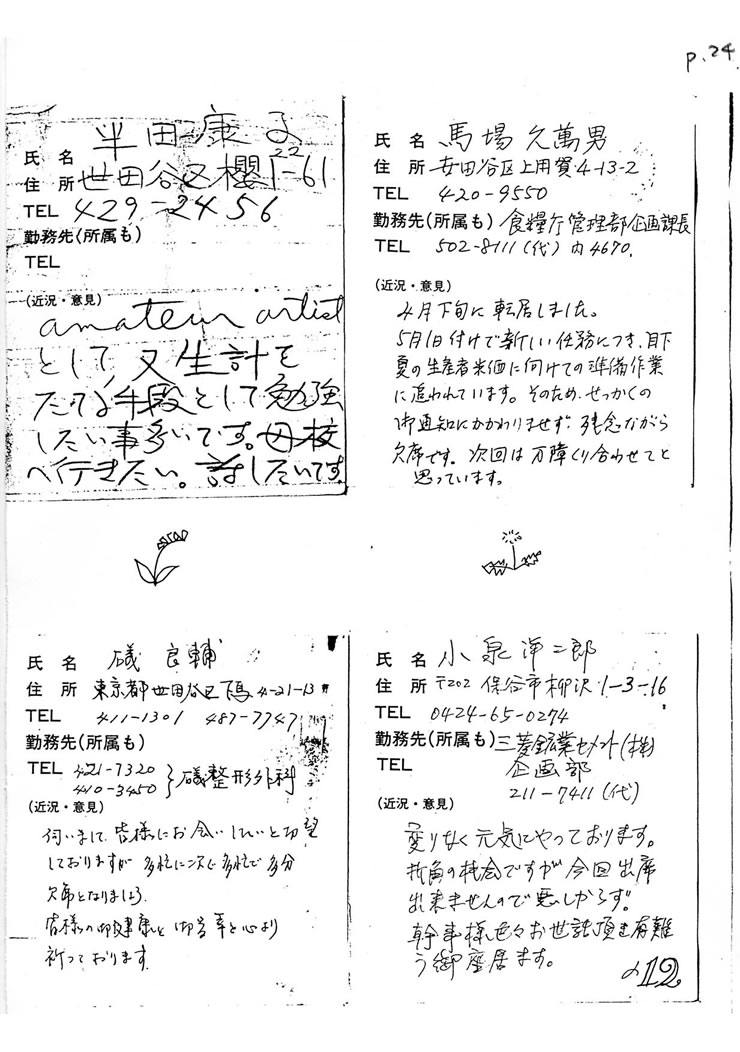 p.24
氏 名 半田康子
住 所 世田谷区櫻1-22-61
TEL 429-2456
勤務先(所属も)
TEL
(近況・意見)
amateur artist
として、又生計を
たてる手段として勉強
したい事多いです。母校
へ行きたい。話したいです
氏 名 馬場久萬男
住 所 世田谷区上用賀4-13-2
TEL 420-9550
勤務先(所属も) 食糧庁管理部企画課長
TEL 502-8111(代)内4670.
(近況・意見)
4月下旬に転居しました。
5月1日付けで新しい任務につき、目下
夏の生産者米価に向けての準備作業
に追われています。そのため、せっかくの
御通知にかかわりませず、残念ながら
欠席です。次回は万障くり合わせてと
思っています。
氏 名 礒 良輔
住 所 東京都世田谷区下馬4-21-13
TEL 411-1301 487-7747
勤務先(所属も)
TEL 421-7320
410-3450 礒整形外科
(近況・意見)
伺いまして、皆様にお会いしたいと切望
しておりますが 多忙に次ぐ多忙で多分
欠席となりましょう.
皆様の御健康と御多幸を心より
祈っております.
氏 名 小泉淳二郎
住 所 〒202 保谷市柳沢1-3-16
TEL 0424-65-0274
勤務先(所属も) 三菱鉱業セメント(株)
企画部
TEL 211-7411(代)
(近況・意見)
変りなく元気にやっております。
折角の機会ですが今回出席
出来ませんので悪しからず。
幹事様、色々お世話頂き有難
う御座居ます。
12